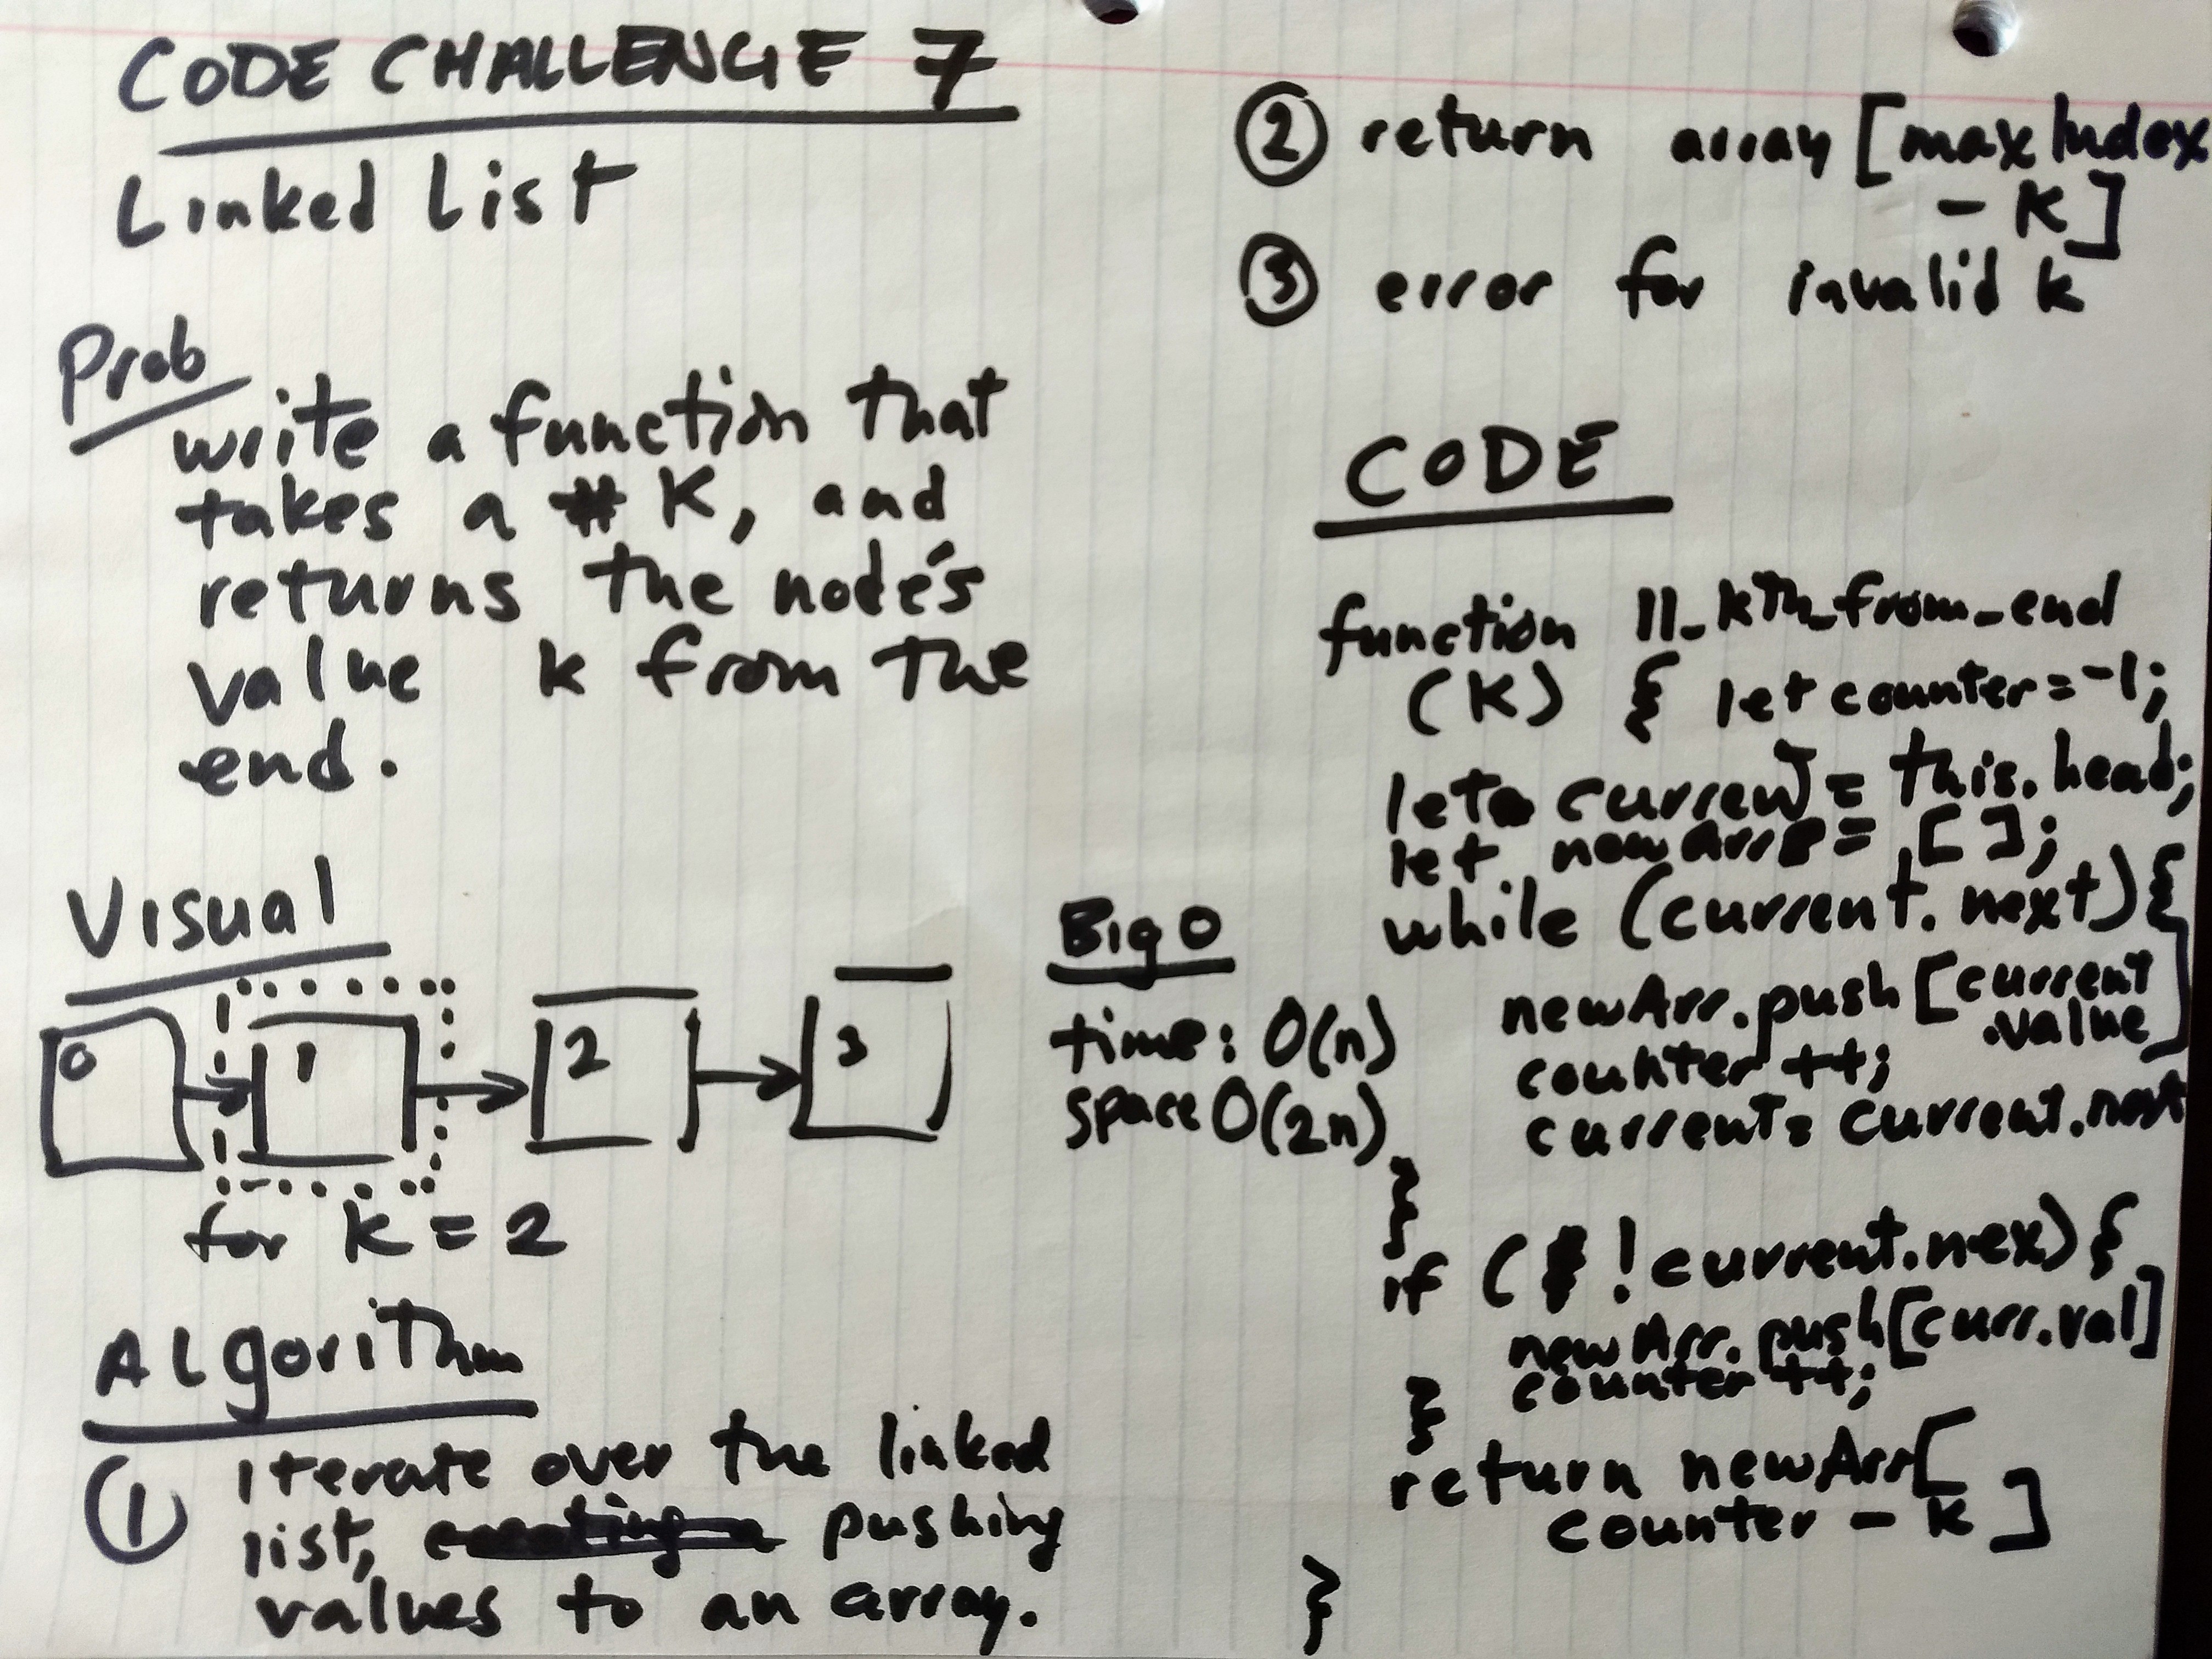 CODE CHALLENGE 7
Linked List
Prob
write a function that
takes a # K, and
returns the node's
value k from the
end.
Visual
0 1 2 3
for k = 2
Algorithm
① iterate over the linked
list, pushing
values to an array.
② return array [maxIndex
- K]
③ error for invalid k
Big O
time: O(n)
space O(2n)
CODE
function ll_kth_from_end
(K) { let counter = -1;
let current = this.head;
let newArr = [ ];
while (current.next) {
newArr.push [current
.value]
counter ++;
current = current.next
}
if ( !current.nex) {
newArr.push[curr.val]
counter ++;
}
return newArr[
counter - k ]
}